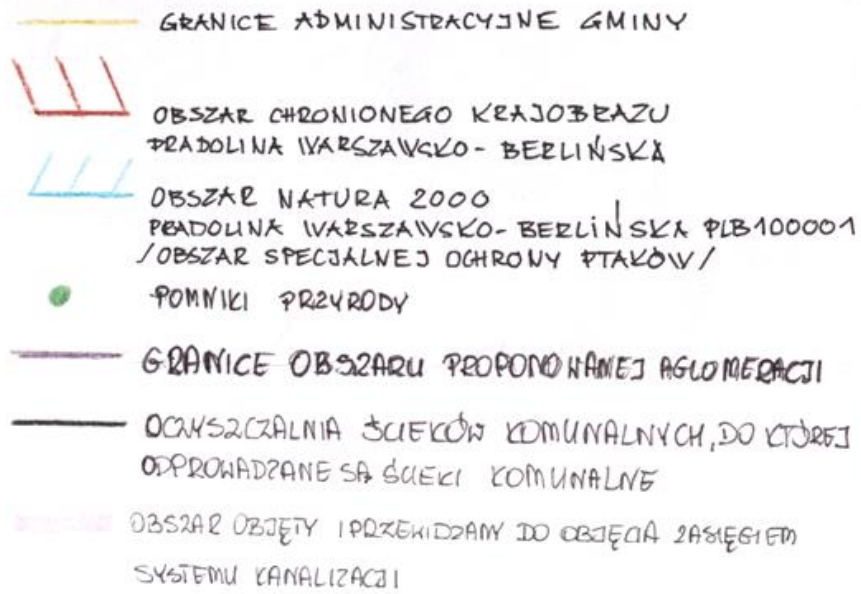 GRANICE ADMINISTRACYJNE GMINY
OBSZAR CHRONIONEGO KRAJOBRAZU
PRADOLINA WARSZAWSKO-BERLIŃSKA
OBSZAR NATURA 2000
PRADOLINA WARSZAWSKO-BERLIŃSKA PLB100001
/OBSZAR SPECJALNEJ OCHRONY PTAKÓW/
POMNIKI PRZYRODY
GRANICE OBSZARU PROPONOWANEJ AGLOMERACJI
OCZYSZCZALNIA ŚCIEKÓW KOMUNALNYCH, DO KTÓREJ
ODPROWADZANE SĄ ŚCIEKI KOMUNALNE
OBSZAR OBJĘTY I PRZEWIDZANY DO OBJĘCIA ZASIĘGIEM
SYSTEMU KANALIZACJI